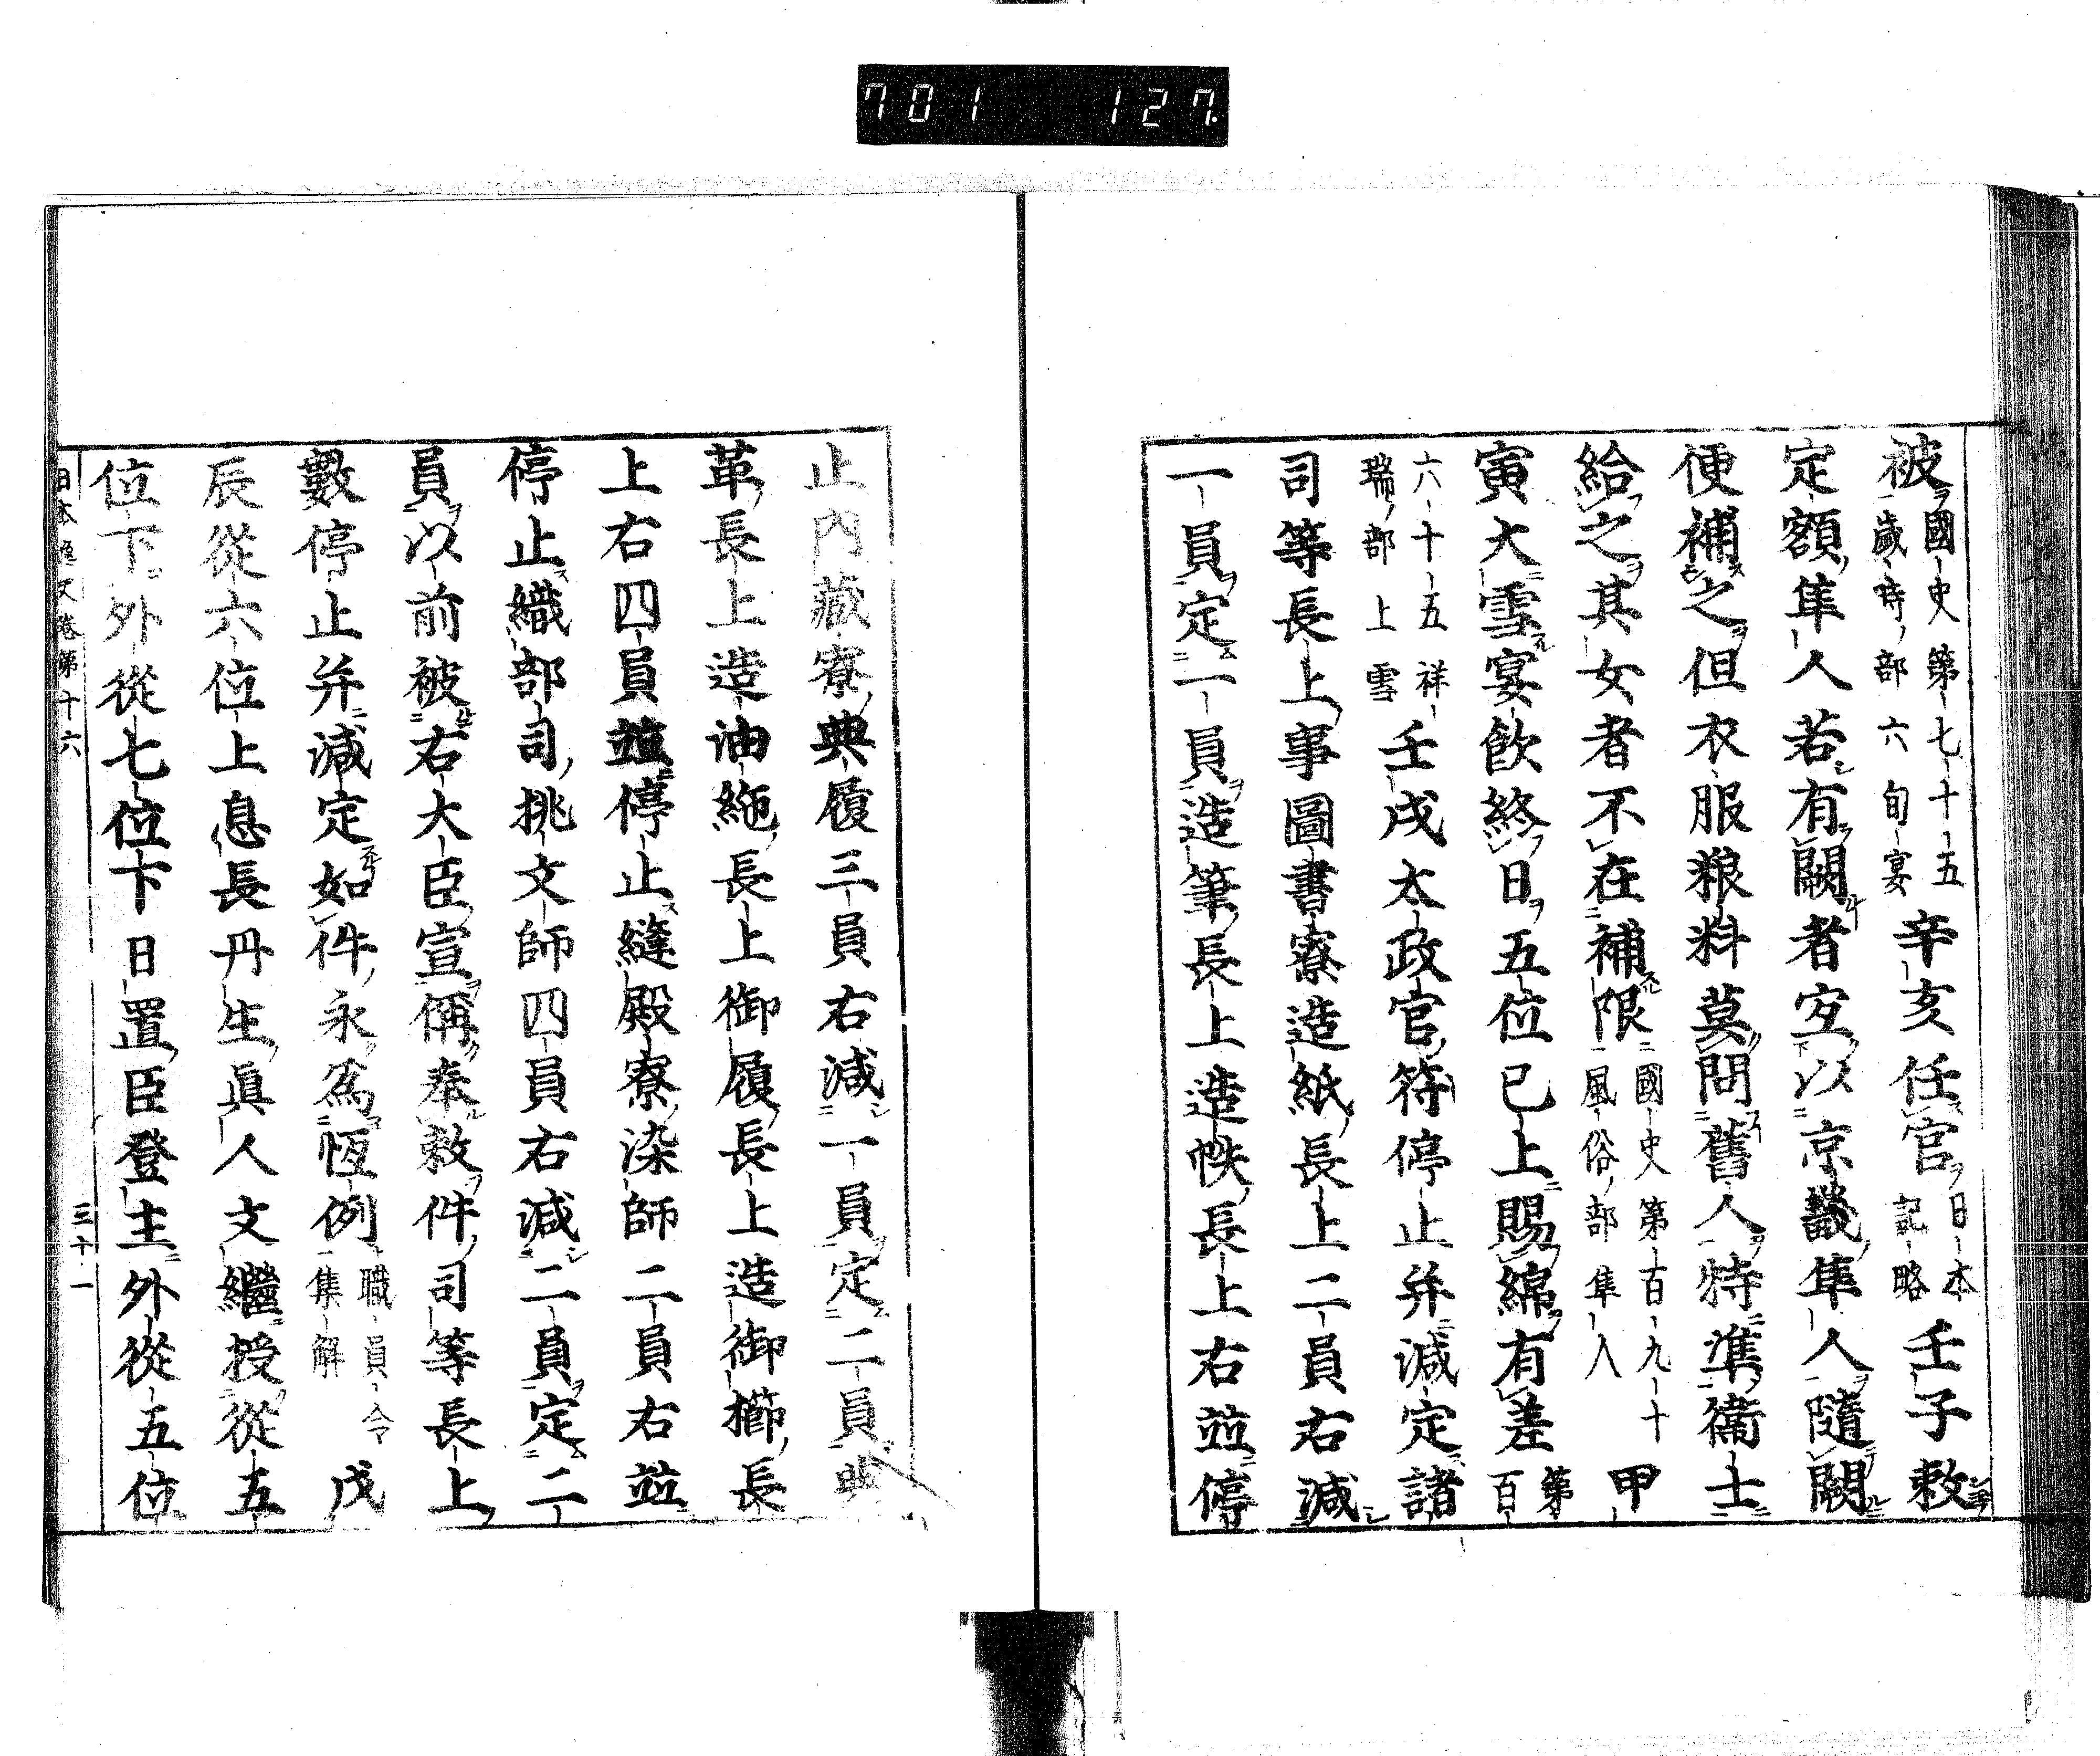 701 127.
被國史第七十五歲時部六旬宴辛亥任官日本記略壬子敕
定額隼人若有闕者宜以京畿隼人隨闕
便補之但衣服粮料莫問舊人特準衞士
給之其女者不在補限國史第百九十風俗部隼人甲
寅大雪宴飮終日五位已上賜綿有差第百
六十五祥瑞部上雪壬戌太政官符停止并減定諸
司等長上事圖書寮造紙長上二員右減
一員定一員造筆長上造帙長上右並停
止內藏寮典履三員右減一員定二員典
革長上造油絁長上御履長上造御櫛長
上右四員並停止縫殿寮染師二員右並
停止織部司挑文師四員右減二員定二
員以前被右大臣宣偁奉敕件司等長上
數停止并減定如件永爲恆例職員令集解戊
辰從六位上息長丹生眞人文繼授從五
位下外從七位下日置臣登主外從五位
日本逸文卷第十六 三十一